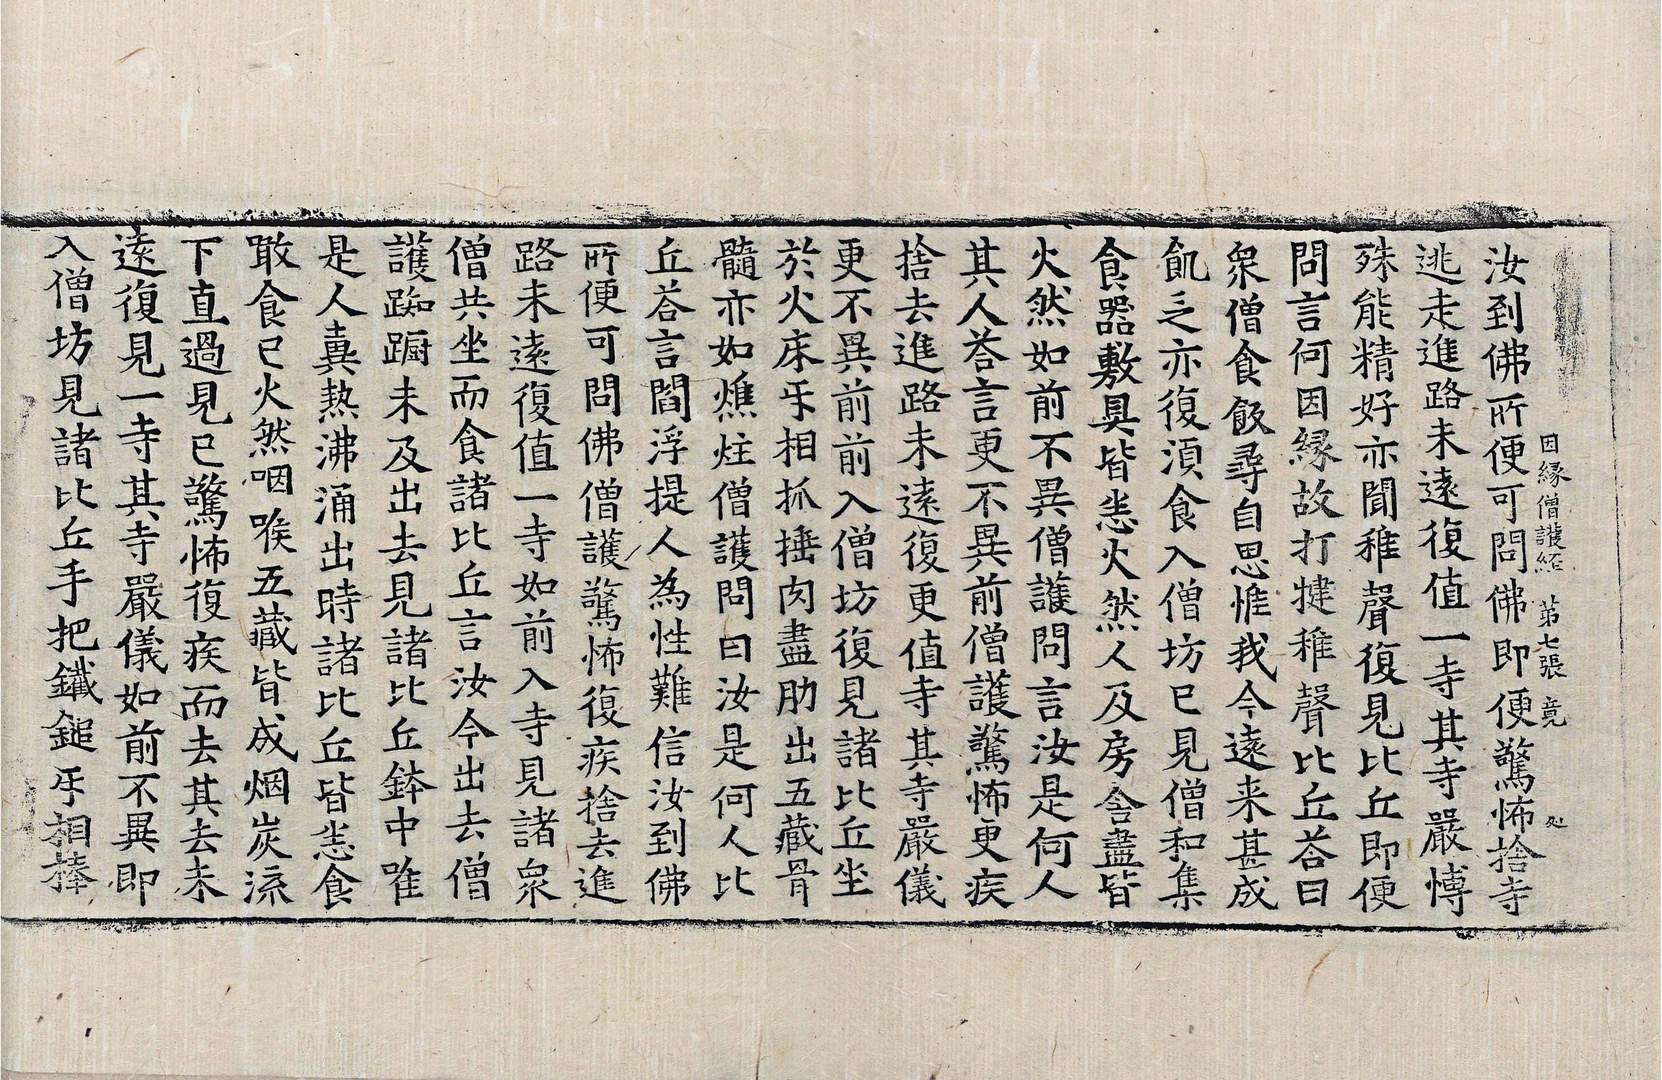 因緣僧護經 第七張 竟 处
汝到佛所便可問佛即便驚怖捨寺
逃走進路未遠復值一寺其寺嚴博
殊能精好亦聞稚聲復見比丘即便
問言何因緣故打犍稚聲比丘荅曰
衆僧食飯尋自思惟我今遠来甚成
飢乏亦復湏食入僧坊已見僧和集
食器敷具皆悉火然人及房舍盡皆
火然如前不異僧護問言汝是何人
其人荅言更不異前僧護驚怖更疾
捨去進路未遠復更值寺其寺嚴儀
更不異前前入僧坊復見諸比丘坐
於火床㸦相抓捶肉盡肋出五藏骨
髓亦如燋炷僧護問曰汝是何人比
丘荅言閻浮提人為性難信汝到佛
所便可問佛僧護驚怖復疾捨去進
路未遠復值一寺如前入寺見諸衆
僧共坐而食諸比丘言汝今出去僧
護踟蹰未及出去見諸比丘鉢中唯
是人糞熱沸涌出時諸比丘皆悉食
噉食已火然咽喉五藏皆成烟炭流
下直過見已驚怖復疾而去其去未
遠復見一寺其寺嚴儀如前不異即
入僧坊見諸比丘手把鐵鎚㸦相棒